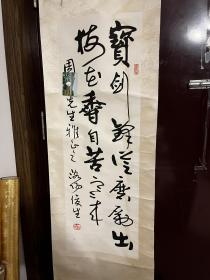 寶劍鋒從磨礪出
梅花香自苦寒来
周先生雅正